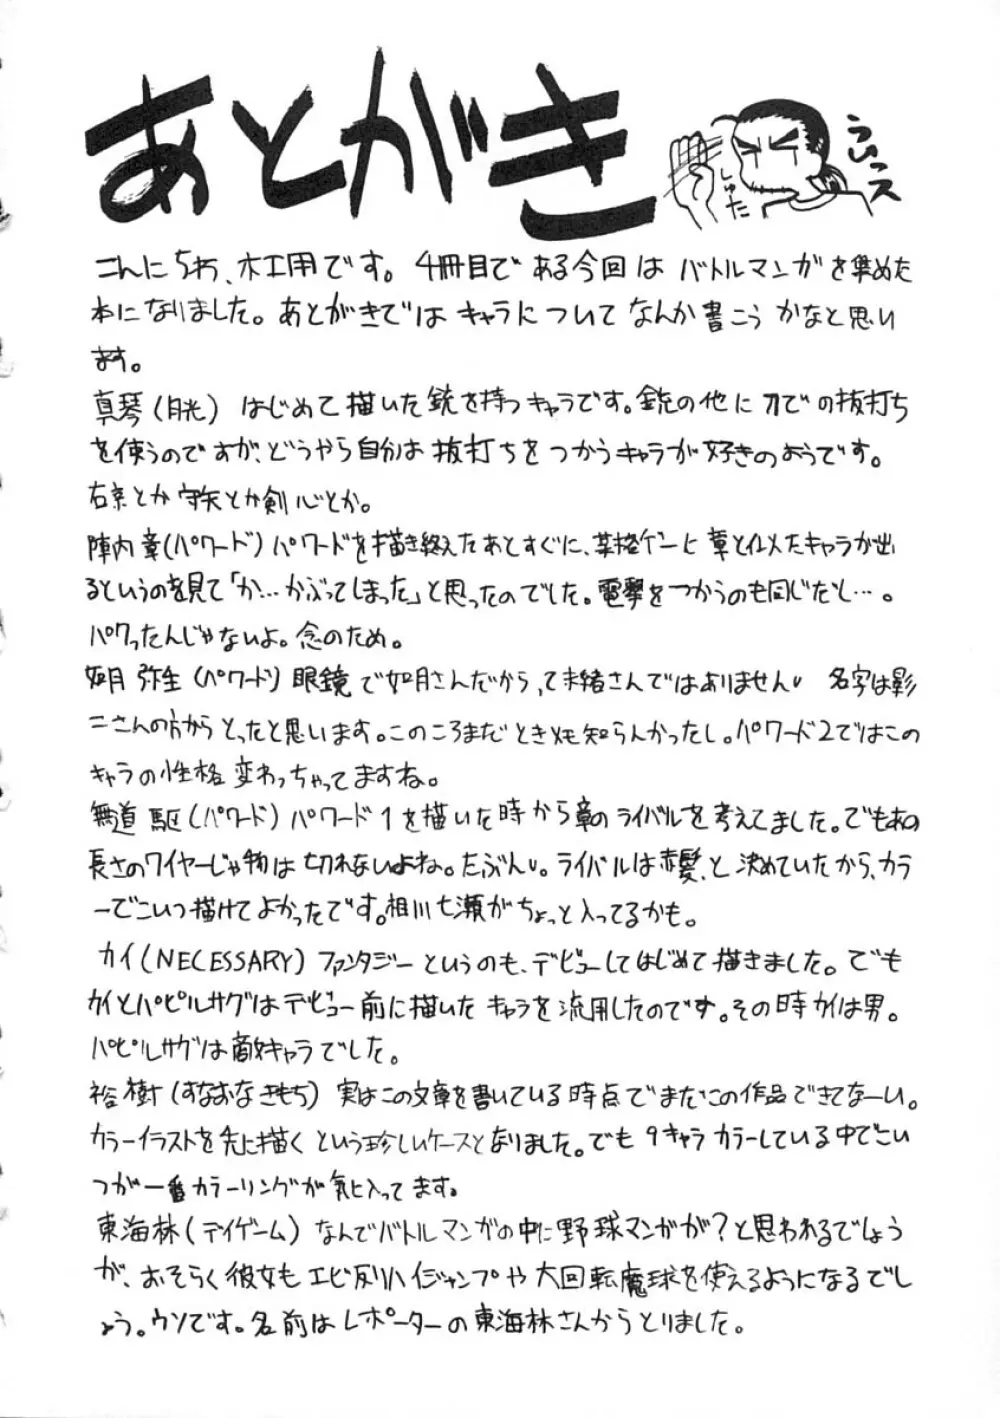 あとがき
ういっス
しゅた
こんにちわ、木工用です。4冊目である今回はバトルマンガを集めた
本になりました。あとがきではキャラについてなんか書こうかなと思い
ます。
真琴(月光) はじめて描いた銃を持つキャラです。銃の他に刀での抜打ち
を使うのですが、どうやら自分は抜打ちをつかうキャラが好きのようです。
右京とか守矢とか剣心とか。
陣内章(パワード) パワードを描き終えたあとすぐに、某格ゲーに章と似たキャラが出
るというのを見て「か…かぶってしまった」と思ったのでした。電撃をつかうのも同じだし…。
パクったんじゃないよ。念のため。
如月弥生(パワード) 眼鏡で如月さんだから、て未緒さんではありません 名字は影
二さんの方からとったと思います。このころまだときメモ知らんかったし。パワード2ではこの
キャラの性格変わっちゃってますね。
無道駆(パワード) パワード1を描いた時から章のライバルを考えてました。でもあの
長さのワイヤーじゃ物は切れないよね。たぶん。ライバルは赤髪、と決めていたから、カラ
ーでこいつ描けてよかったです。相川七瀬がちょっと入ってるかも。
カイ(NECESSARY) ファンタジーというのも、デビューしてはじめて描きました。でも
カイとパピルサグはデビュー前に描いたキャラを流用したのです。その時カイは男。
パピルサグは敵キャラでした。
裕樹(すなおなきもち) 実はこの文章を書いている時点でまだこの作品できてなーい。
カラーイラストを先に描くという珍しいケースとなりました。でも9キャラカラーしている中でこい
つが一番カラーリングが気に入ってます。
東海林(デイゲーム) なんでバトルマンガの中に野球マンガが?と思われるでしょう
が、おそらく彼女もエビ反りハイジャンプや大回転魔球を使えるようになるでし
ょう。ウソです。名前はレポーターの東海林さんからとりました。